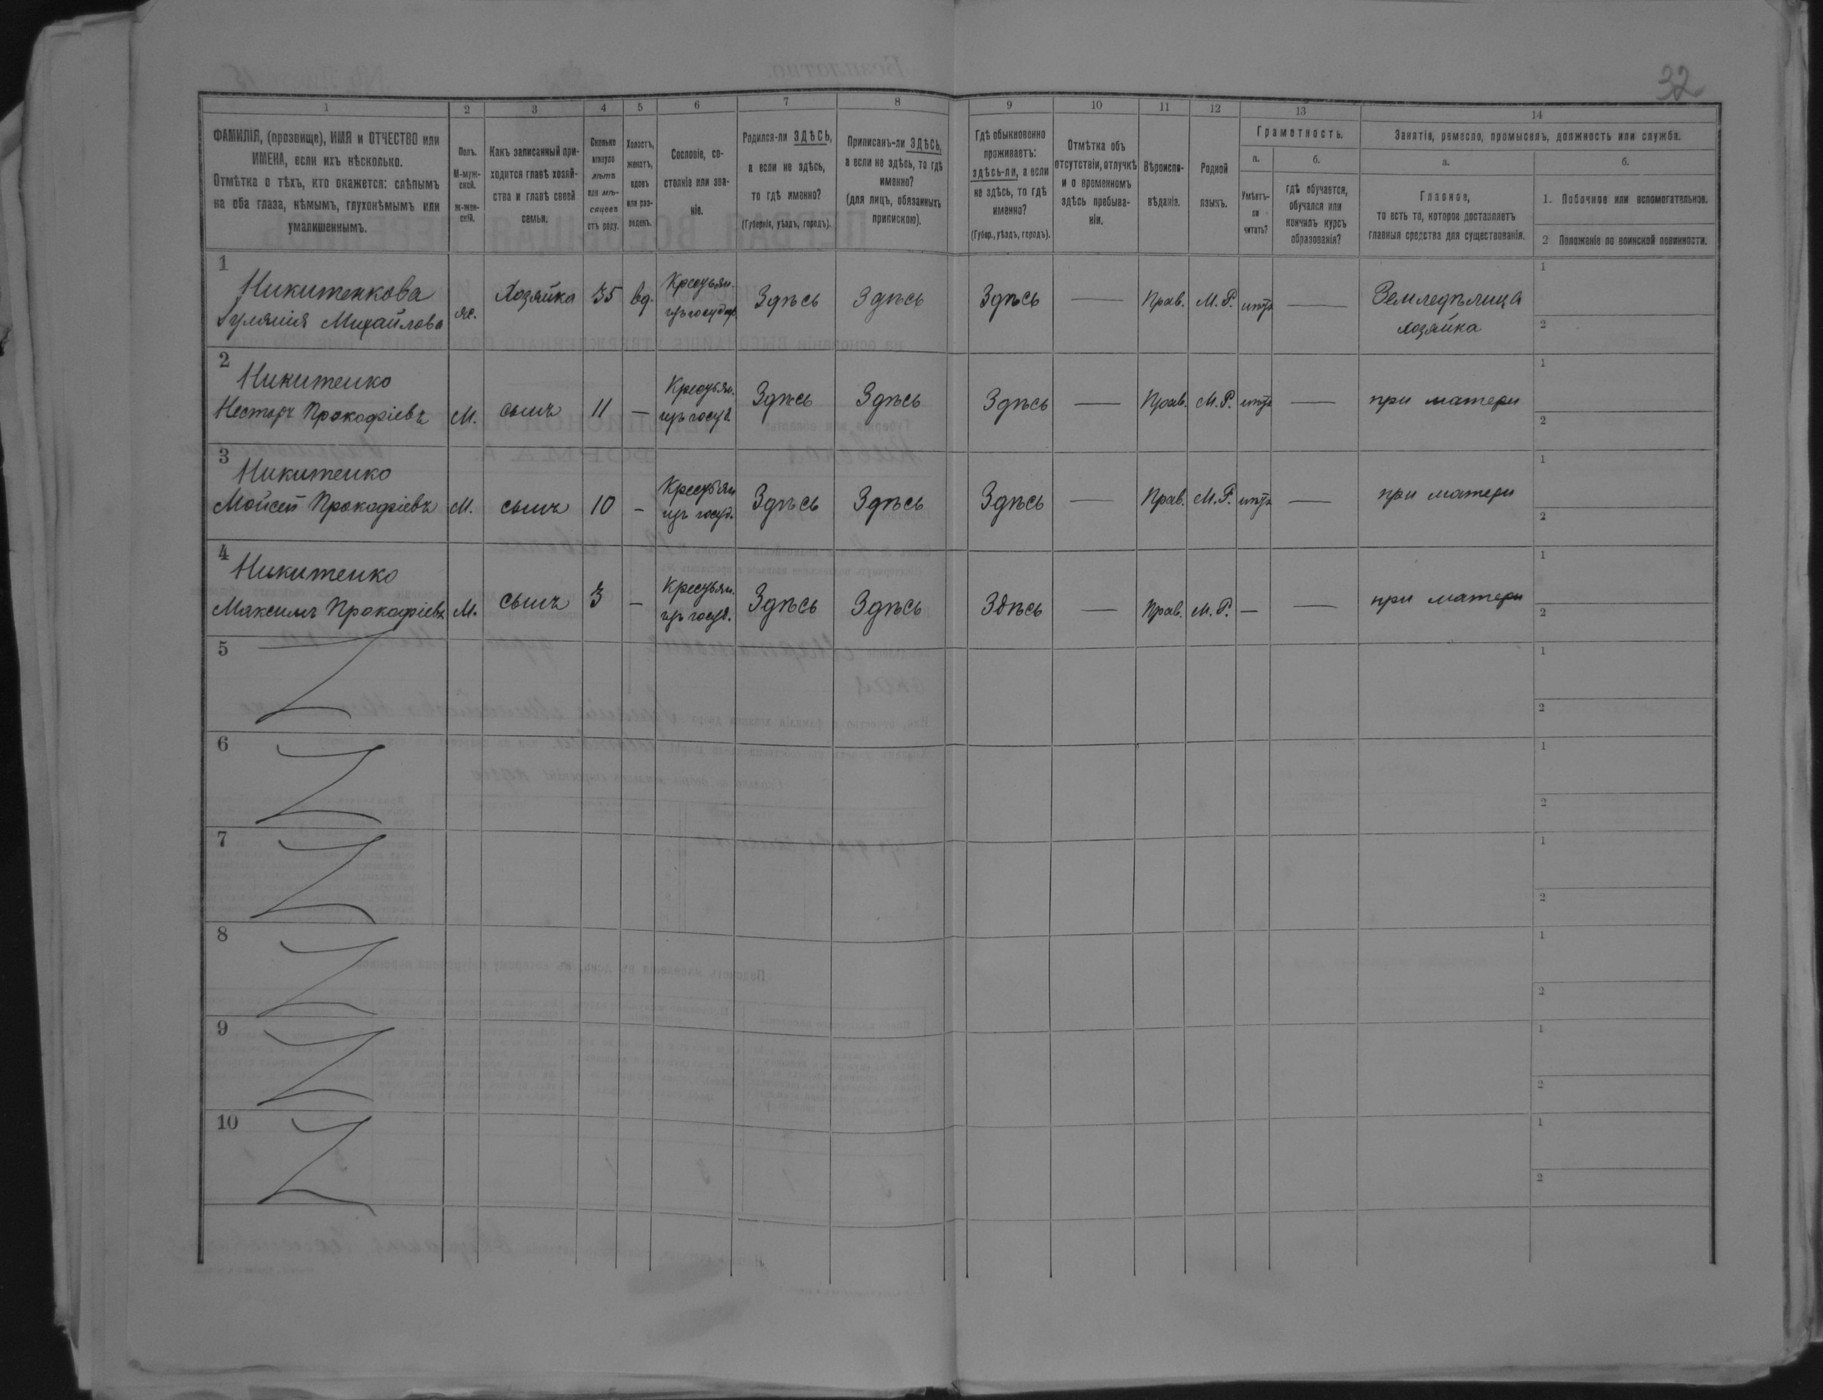 32
1 2 3 4 5 6 7 8 9 10 11 12 13 14
ФАМИЛІЯ, (прозвище), ИМЯ и ОТЧЕСТВО или
ИМЕНА, если ихъ нѣсколько.
Отмѣтка о тѣхъ, кто окажется: слѣпымъ
на оба глаза, нѣмымъ, глухонѣмымъ или
умалишеннымъ.
Полъ.
М-муж-
ской.
ж-жен-
скій.
Какъ записанный при-
ходится главѣ хозяй-
ства и главѣ своей
семьи.
Сколько
минуло
лѣтъ
или мѣ-
сяцевъ
отъ роду.
Холостъ,
женатъ,
вдовъ
или раз-
веденъ.
Сословіе, со-
стояніе или зва-
ніе.
Родился-ли ЗДѢСЬ,
а если не здѣсь,
то гдѣ именно?
(Губернія, уѣздъ, городъ).
Приписанъ-ли ЗДѢСЬ,
а если не здѣсь, то гдѣ
именно?
(для лицъ, обязанныхъ
припискою).
Гдѣ обыкновенно
проживаетъ:
здѣсь-ли, а если
не здѣсь, то гдѣ
именно?
(Губер., уѣздъ, городъ).
Отмѣтка объ
отсутствіи, отлучкѣ
и о временномъ
здѣсь пребыва-
ніи.
Вѣроиспо-
вѣданіе.
Родной
языкъ.
Грамотность.
а.
Умѣетъ-
ли
читать?
б.
гдѣ обучается,
обучался или
кончилъ курсъ
образованія?
Занятіе, ремесло, промыселъ, должность или служба.
а.
Главное,
то есть то, которое доставляетъ
главныя средства для существованія.
б.
1. Побочное или вспомогательное.
2 Положеніе по воинской повинности.
1 Никитенкова Хозяйка 35 вд. Крестьян. Здѣсь Здѣсь Здѣсь — Прав. М.Р. нѣтъ — Земледѣлица 1
Михайлова ж. хозяйка 2
2 Никитенко Крестьян. 1
Несторъ Прокофіевъ М. сынъ 11 — Здѣсь Здѣсь Здѣсь — Прав. М.Р. нѣтъ — при матери 2
3 Никитенко Крестьян 1
Мойсей Прокофіевъ М. сынъ 10 — Здѣсь Здѣсь Здѣсь — Прав. М.Р. нѣтъ — при матери 2
4 Никитенко Крестьян. 1
Максимъ Прокофіевъ М. сынъ 3 — Здѣсь Здѣсь Здѣсь — Прав. М.Р. — — при матери 2
5 1
2
6 1
2
7 1
2
8 1
2
9 1
2
10 1
2